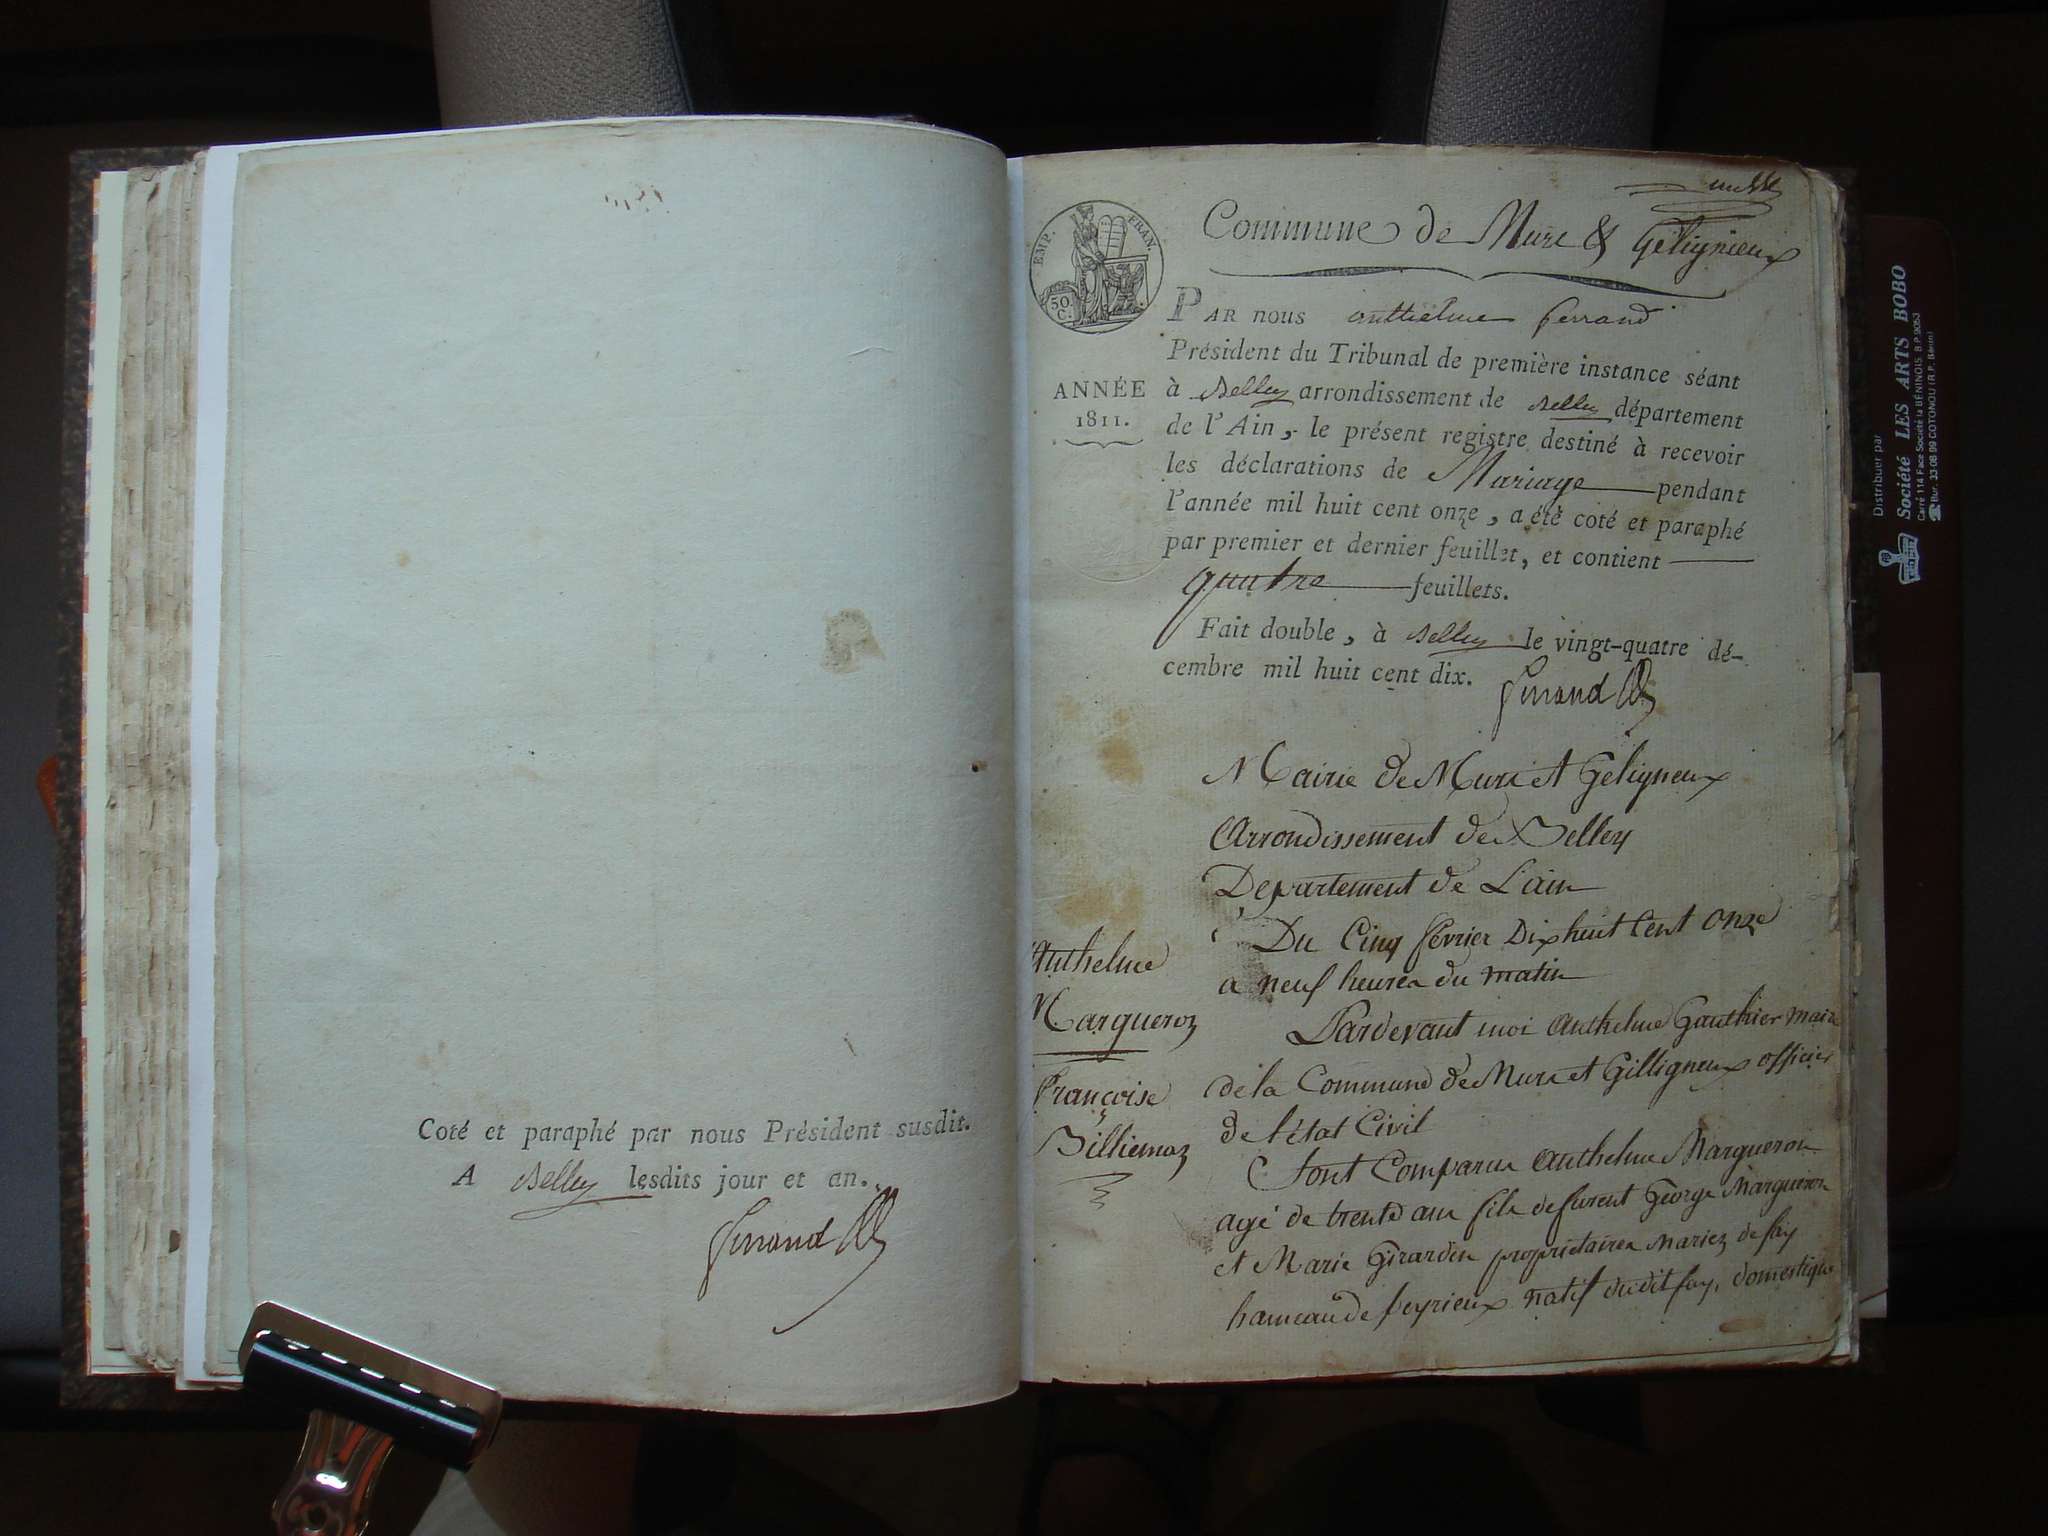 Coté et paraphé par nous Président susdit.
A Belley lesdits jour et an.
ferrand
Commune de Murs & Gelignieux
EMP. FRAN.
50 C.
ANNÉE
1811.
PAR nous anthelme ferrand
Président du Tribunal de première instance séant
à Belley arrondissement de Belley département
de l'Ain, le présent registre destiné à recevoir
les déclarations de Mariage pendant
l'année mil huit cent onze, a été coté et paraphé
par premier et dernier feuillet, et contient
quatre feuillets.
Fait double, à Belley le vingt-quatre dé-
cembre mil huit cent dix.
ferrand
Mairie de Murs et Geligneux
Arrondissement de Belley
Departement de L'ain
Du Cinq fevrier Dixhuit Cent onze
a neuf heures du matin
Anthelme
Margueroz
françoise
Billiemaz
Pardevant moi Anthelme Gauthier maire
de la Commune de Murs et Gilligneux officier
de l'état Civil
Sont Comparus Anthelme Margueron
agé de trente ans fils de fleurent George Margueron
et Marie Girardin proprietaires mariez de fay
hameau de peyrieux natif dudit fay, domestique
Distribuer par
Société LES ARTS BOBO
Carré 114 Face Société la BÉNINOIS B.P.9053
Bur. 33-08-99 COTONOU (R.P. Bénin)